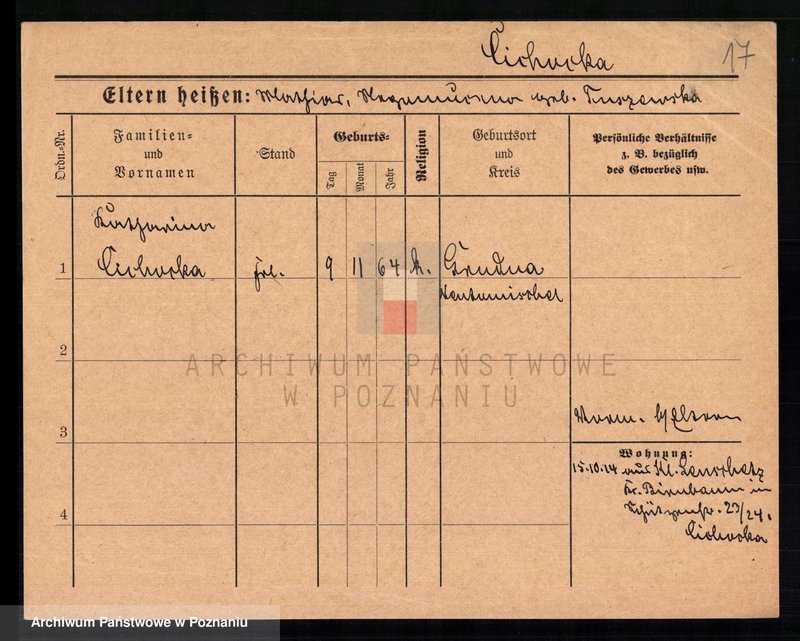 Cichocka 17
Eltern heißen: Mathias, Nepomucena geb. Tuszewska
Ordn.-Nr.
Familien-
und
Vornamen
Stand
Geburts-
Tag
Monat
Jahr
Religion
Geburtsort
und
Kreis
Persönliche Verhältnisse
z. B. bezüglich
des Gewerbes usw.
Katharina
1 Cichocka Frl. 9 11 64 k. Grudna
Neutomischel
2
ARCHIWUM PAŃSTWOWE
W POZNANIU
3
Worm. b/Eltern
Wohnung:
15.10.14 aus Kl. Lenschetz
Kr. Birnbaum in
Schützenstr. 23/24.
Cichocka
4
Archiwum Państwowe w Poznaniu